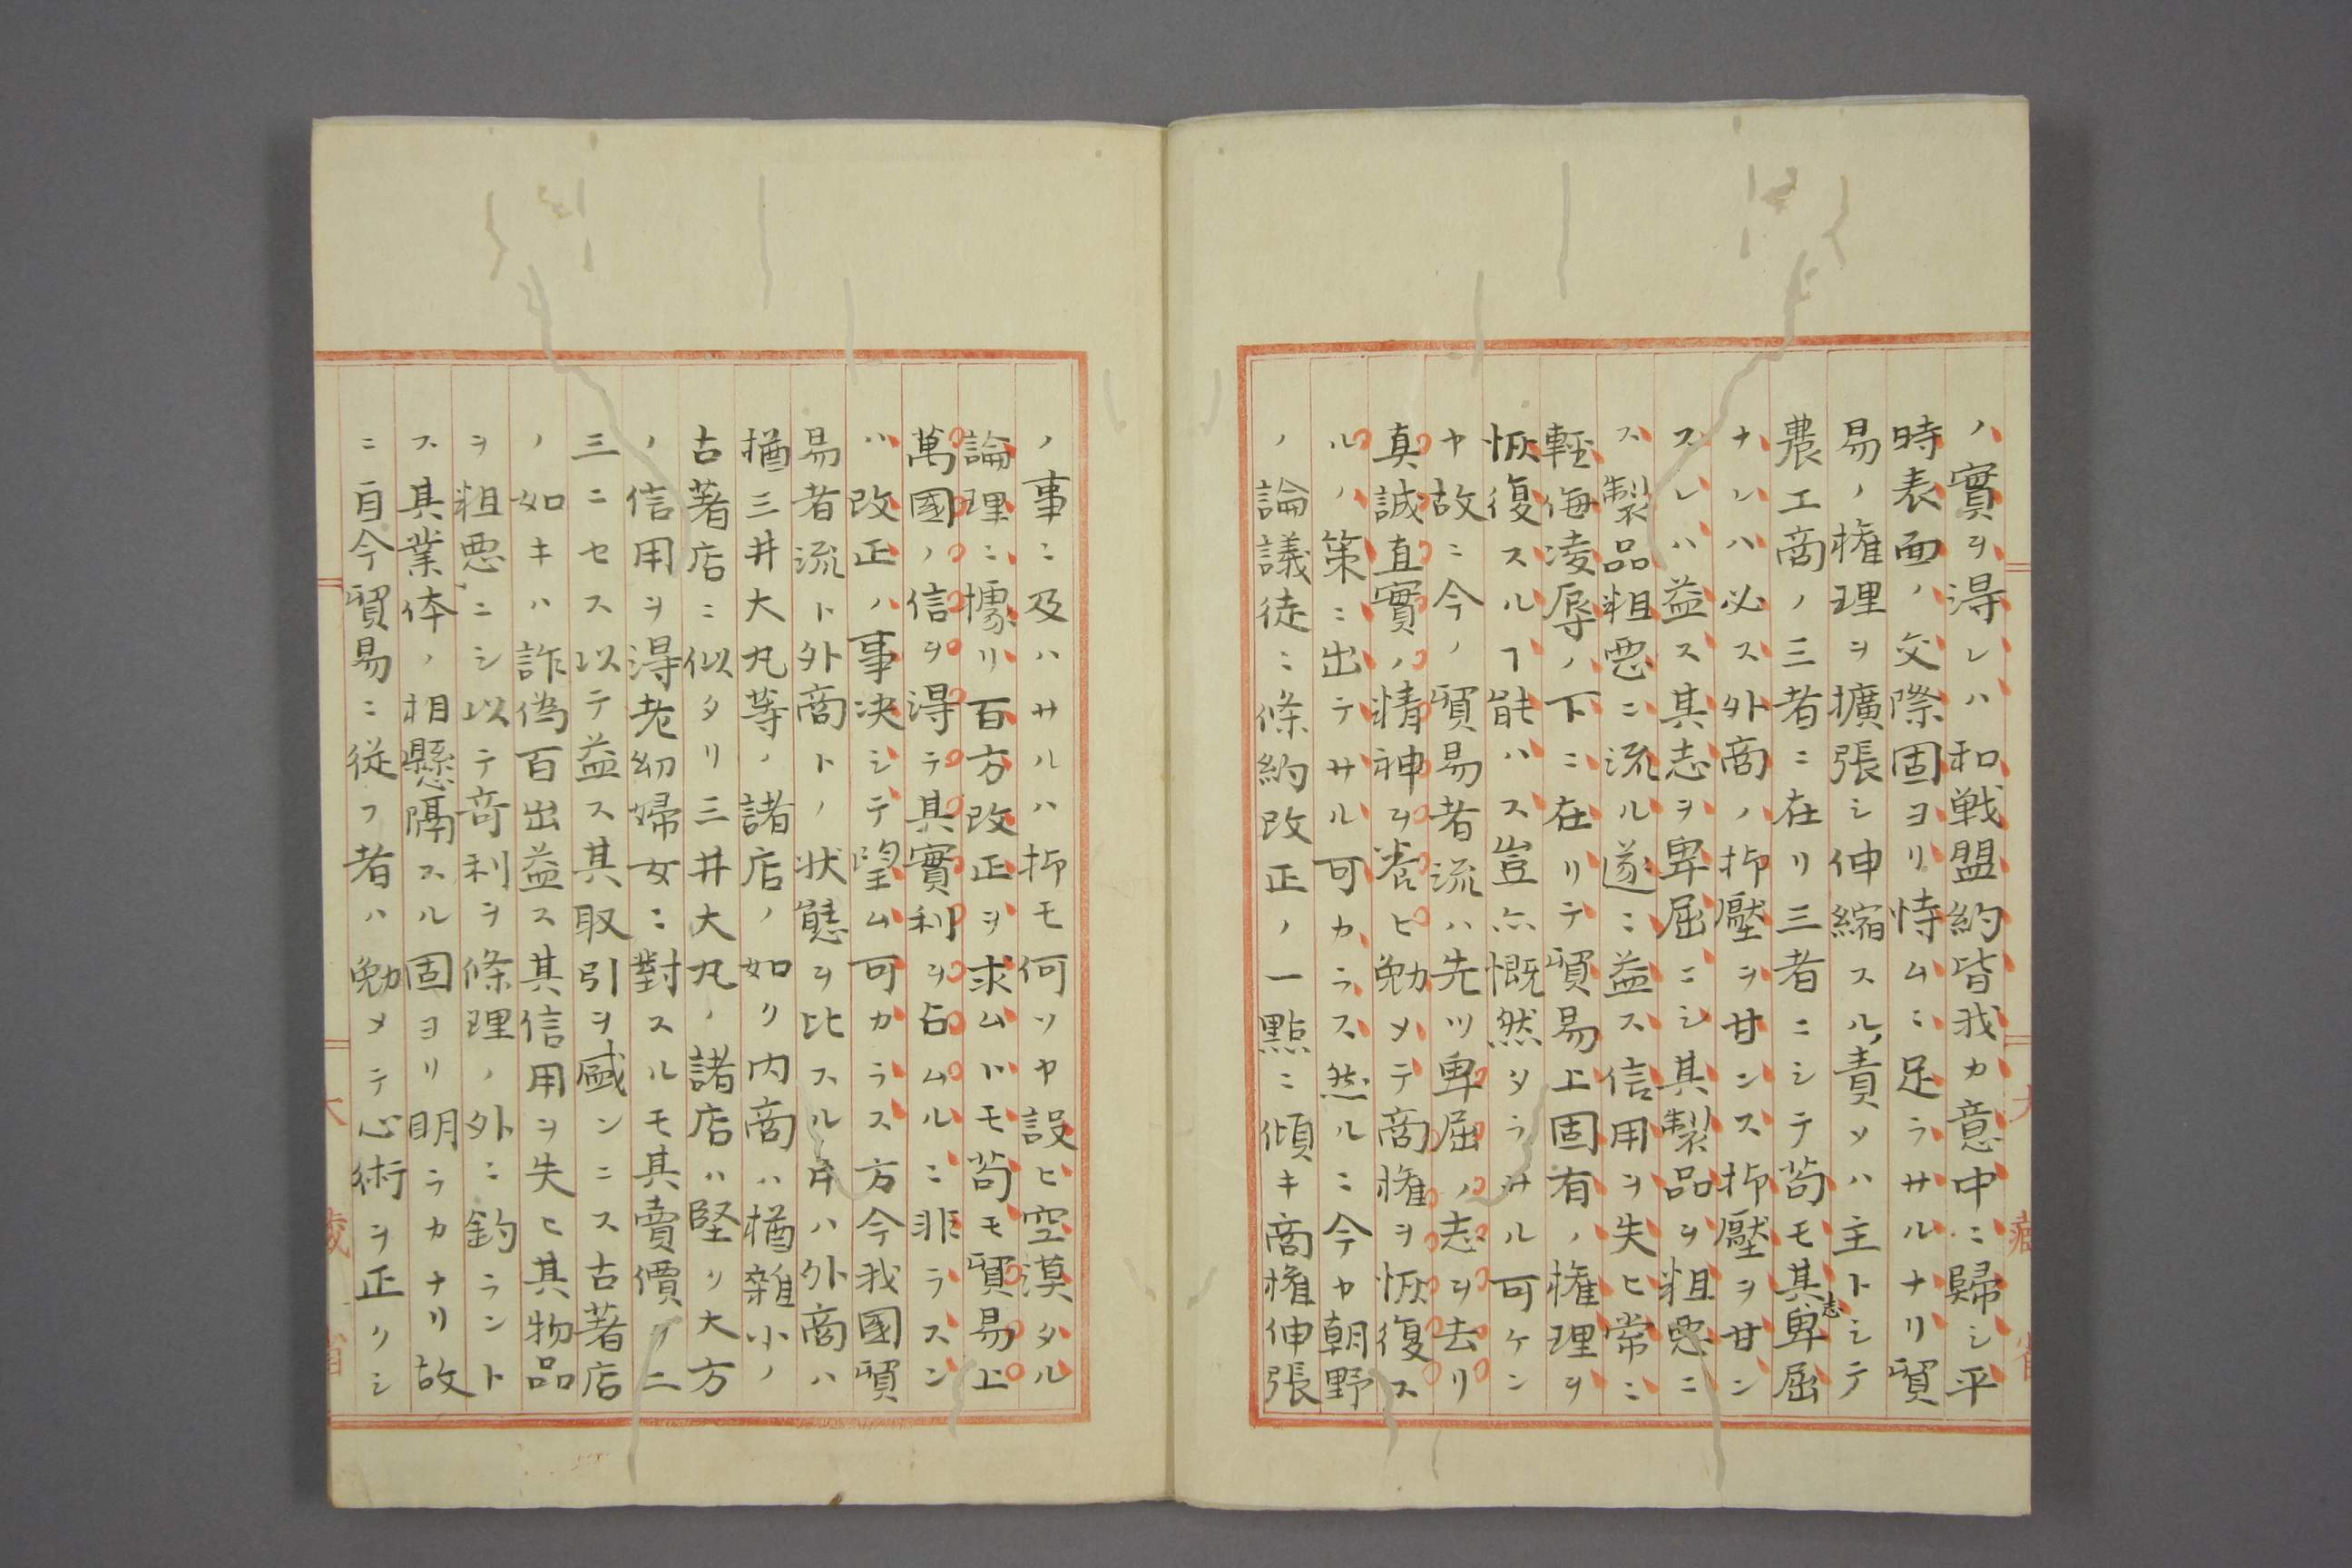 ノ實ヲ得レハ和戦盟約皆我カ意中ニ歸シ平
時表面ノ交際固ヨリ恃ムニ足ラサルナリ貿
易ノ権理ヲ擴張シ伸縮スル責メハ主トシテ
農工商ノ三者ニ在リ三者ニシテ苟モ其志卑屈
ナレハ必ス外商ノ抑壓ヲ甘ンス抑壓ヲ甘ン
スレハ益ス其志ヲ卑屈ニシ其製品ヲ粗悪ニ
ス製品粗悪ニ流ル遂ニ益ス信用ヲ失ヒ常ニ
輕侮凌辱ノ下ニ在リテ貿易上固有ノ権理ヲ
恢復スルヿ能ハス豈亦慨然タラサル可ケン
ヤ故ニ今ノ貿易者流ハ先ツ卑屈ノ志ヲ去リ
真誠直實ノ精神ヲ養ヒ勉メテ商権ヲ恢復ス
ルノ策ニ出テサル可カラス然ルニ今ヤ朝野
ノ論議徒ニ條約改正ノ一點ニ傾キ商権伸張
ノ事ニ及ハサルハ抑モ何ソヤ設ヒ空漠タル
論理ニ據リ百方改正ヲ求ムトモ苟モ貿易上
萬國ノ信ヲ得テ其實利ヲ占ムルニ非ラスン
ハ改正ノ事决シテ望ム可カラス方今我國貿
易者流ト外商トノ状態ヲ比スル片ハ外商ハ
猶三井大丸等ノ諸店ノ如リ内商ハ猶雜小ノ
古著店ニ似タリ三井大丸ノ諸店ハ堅リ大方
ノ信用ヲ得老幼婦女ニ對スルモ其賣價ヲ二
三ニセス以テ益ス其取引ヲ盛ンニス古著店
ノ如キハ詐偽百出益ス其信用ヲ失ヒ其物品
ヲ粗悪ニシ以テ奇利ヲ條理ノ外ニ釣ラント
ス其業体ノ相懸隔スル固ヨリ明ラカナリ故
ニ自今貿易ニ従フ者ハ勉メテ心術ヲ正クシ